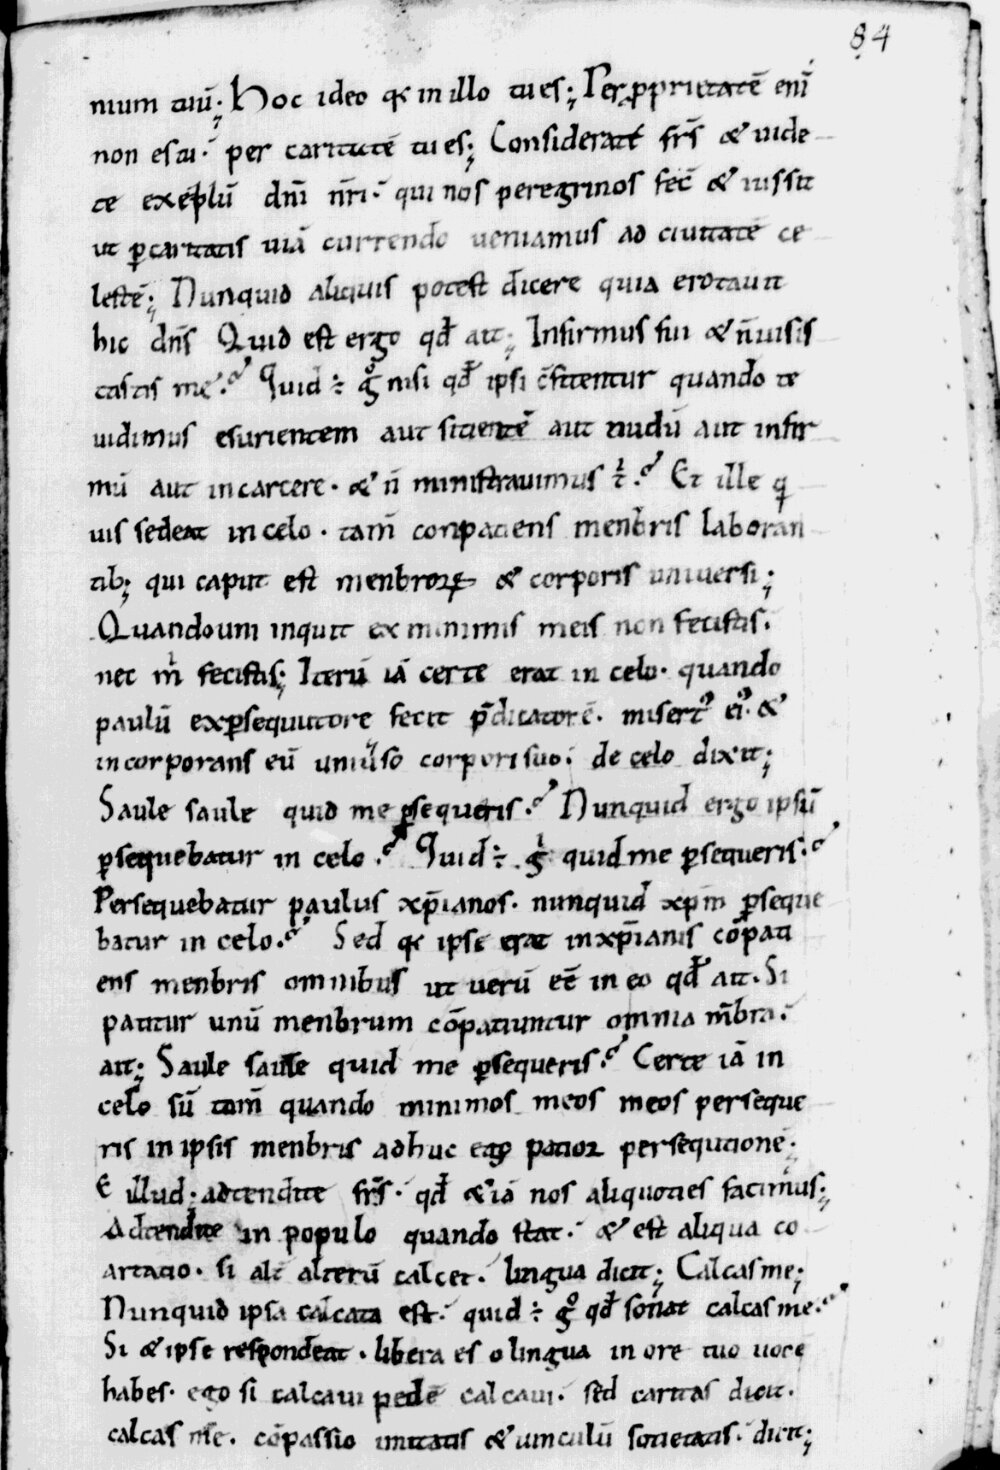 84
nium tuū; Hoc ideo qꝛ in illo tu es; Per ꝓprietatē eni̅
non es tu· per caritatē tu es; Considerate fr̄s & uide
te exeplū dn̄i nr̄i· qui nos peregrinos fec̄ & iussit
ut ꝑ caritatis uiā currendo ueniamus ad ciuitatē ce
lestē; Nunquid aliquis potest dicere quia erotauit
hic dn̄s Quid est ergo qđ ait; Infirmus fui & n̄ uisi
tastis me? Quid ÷ gͦ nisi qđ ipsi c̄fitentur quando te
uidimus esurientem aut sitientē aut nudū aut infir
mū aut in carcere· & n̄ ministrauimus t̍? Et ille q
uis sedeat in celo· tam̄ conpatiens menbris laboran
tib; qui caput est menbroꝝ & corporis uniuersi;
Quandoum inquit ex minimis meis non fecistis·
nec m̍ fecistis; Iterū iā certe erat in celo· quando
paulū exꝑsequutore fecit p̄dicatorē· misertꝰ eiꝰ &
incorporans eū uniu̍so corpori suo· de celo dixit;
Saule saule quid me ꝑsequeris? Nunquid ergo ipsū
ꝑsequebatur in celo? Quid ÷ g̍ quid me ꝑsequeris?
Persequebatur paulus xp̄ianos· nunquid xpm̄ ꝑseque
batur in celo? Sed qꝛ ipse erat in xp̄ianis cōpati
ens menbris omnibus ut uerū eē in eo qđ ait· Si
patitur unū menbrum cōpatiuntur omnia m̄bra·
ait; Saule saule quid me ꝑsequeris? Certe iā in
celo sū tam̄ quando minimos meos meos perseque
ris in ipsis menbris adhuc ego patior persequtionē;
E illud· adtendite fr̄s· qđ & iā nos aliquoties facimus;
Adtendite in populo quando stat· & est aliqua co
artatio· si alt̄ alterū calcet· lingua dicit; Calcas me;
Nunquid ipsa calcata est· quid ÷ gͦ qđ sonat calcas me?
Si & ipse respondeat· libera es o lingua in ore tuo uocē
habes· ego si calcaui pedē calcaui· sed caritas dicit·
calcas me· cōpassio unitatis & uinculū societatis· dicit;